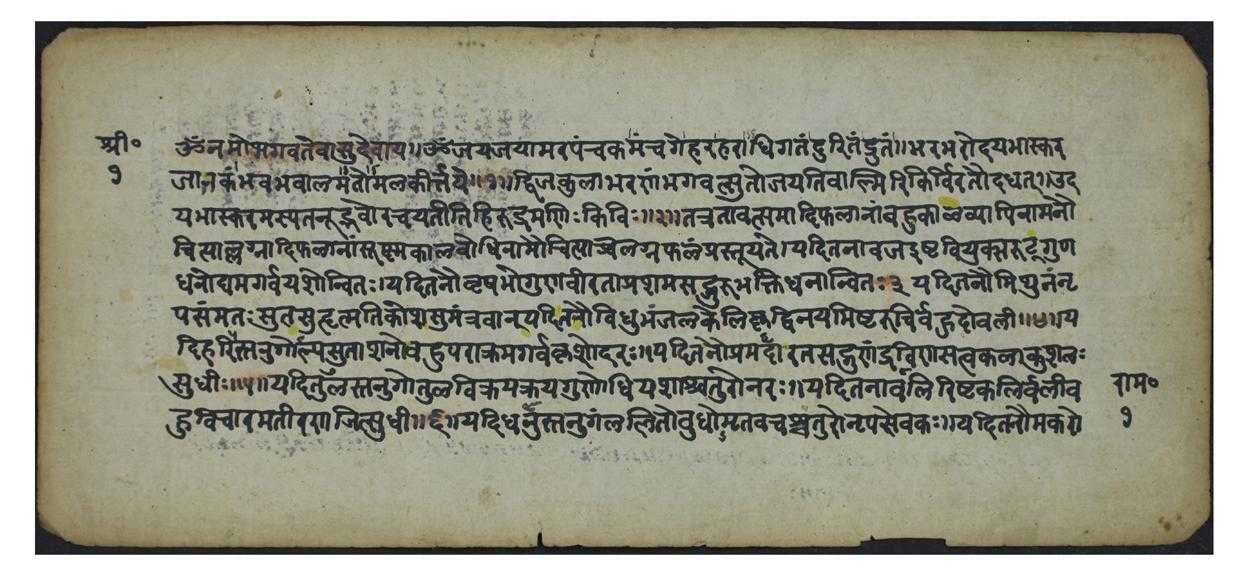 श्री॰
१
ॐनमोभगवतेवासुदेवाय॥ॐजयजयामरपंचकमंचगेहरहराधिगतंदुरितंद्रुतं॥भरभरोदयभास्कर
जातकंभवभवालमतोमलकीर्त्तये॥१॥द्विजकुलाभरणंभगवत्सुतोजयतिवाल्मिरिकिर्विरतोदधत्॥उद
यभास्करमस्यतनूद्भवोरचयतीतिहिरूद्रमणिःकिवि॥२॥तत्रतावत्समादिफलानांबहुकाळव्यापिनामनौ
चित्याल्लग्नादिफळानांसूक्ष्मकालबोधिनामौचित्याच्चलग्नफळंप्रस्तूयते।यदितनावजदृष्टवियुक्सरूट्गुण
धनोद्यमगर्वयशोन्वितः।यदितनौवृषभोगुणवीरताप्रशमसद्गुरूभक्तिधनान्वितः३यदितनौमिथुनंनृ
पसंमतःसुतसुहृत्मतिकोशसुमंत्रवान्यदितनौविधुभंजलकेलिकृद्विनयमिष्टरुचिर्बहुदोवली॥४॥य
दिहरिस्तनुगोल्पसुताशनोबहुपराक्रमगर्वकृशोदरः॥यदितनौप्रमदारतसद्गुणंद्रविणसत्वकलाकुशलः
सुधीः॥५॥यदितुलस्तनुगोतुळविक्रयक्रयगुणोधियशाश्चतुरोनरः॥यदितनावलिरिष्टकलिर्बलीब
हुविचारमतीरणजित्सुधी॥६॥यदिधनुस्तनुगंललितोबुधोमृतवचश्चतुरोनृपसेवकः॥यदितनौमकरो
राम॰
१